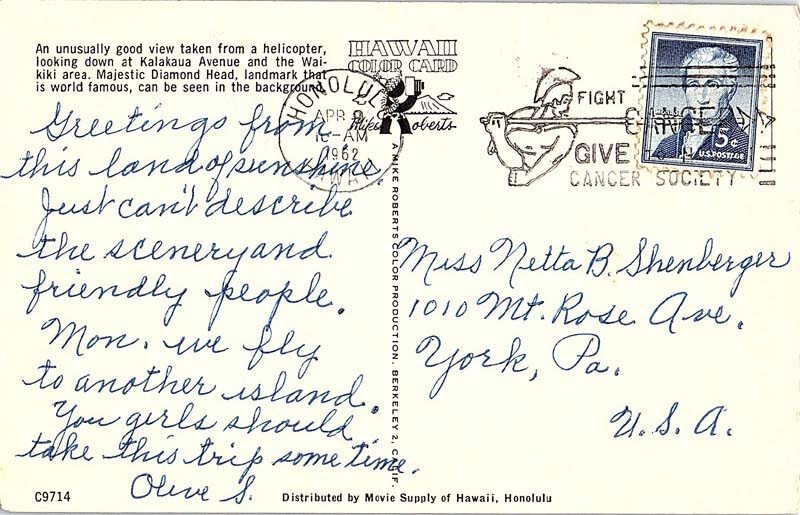 An unusually good view taken from a helicopter,
looking down at Kalakaua Avenue and the Wai-
kiki area. Majestic Diamond Head, landmark that
is world famous, can be seen in the background.
HAWAII
COLOR CARD
Mike Roberts
HONOLULU
APR 9
AM
1962
HAWAII
FIGHT
CANCER
GIVE
CANCER SOCIETY
5¢
U.S. POSTAGE
Greetings from
this land of sunshine.
Just can't describe
the scenery and
friendly people.
Mon. we fly
to another island.
You girls should
take this trip some time.
Olive S.
MIKE ROBERTS COLOR PRODUCTION. BERKELEY 2, CALIF.
Miss Netta B. Shenberger
1010 Mt. Rose Ave.
York, Pa.
U.S.A.
C9714
Distributed by Movie Supply of Hawaii, Honolulu